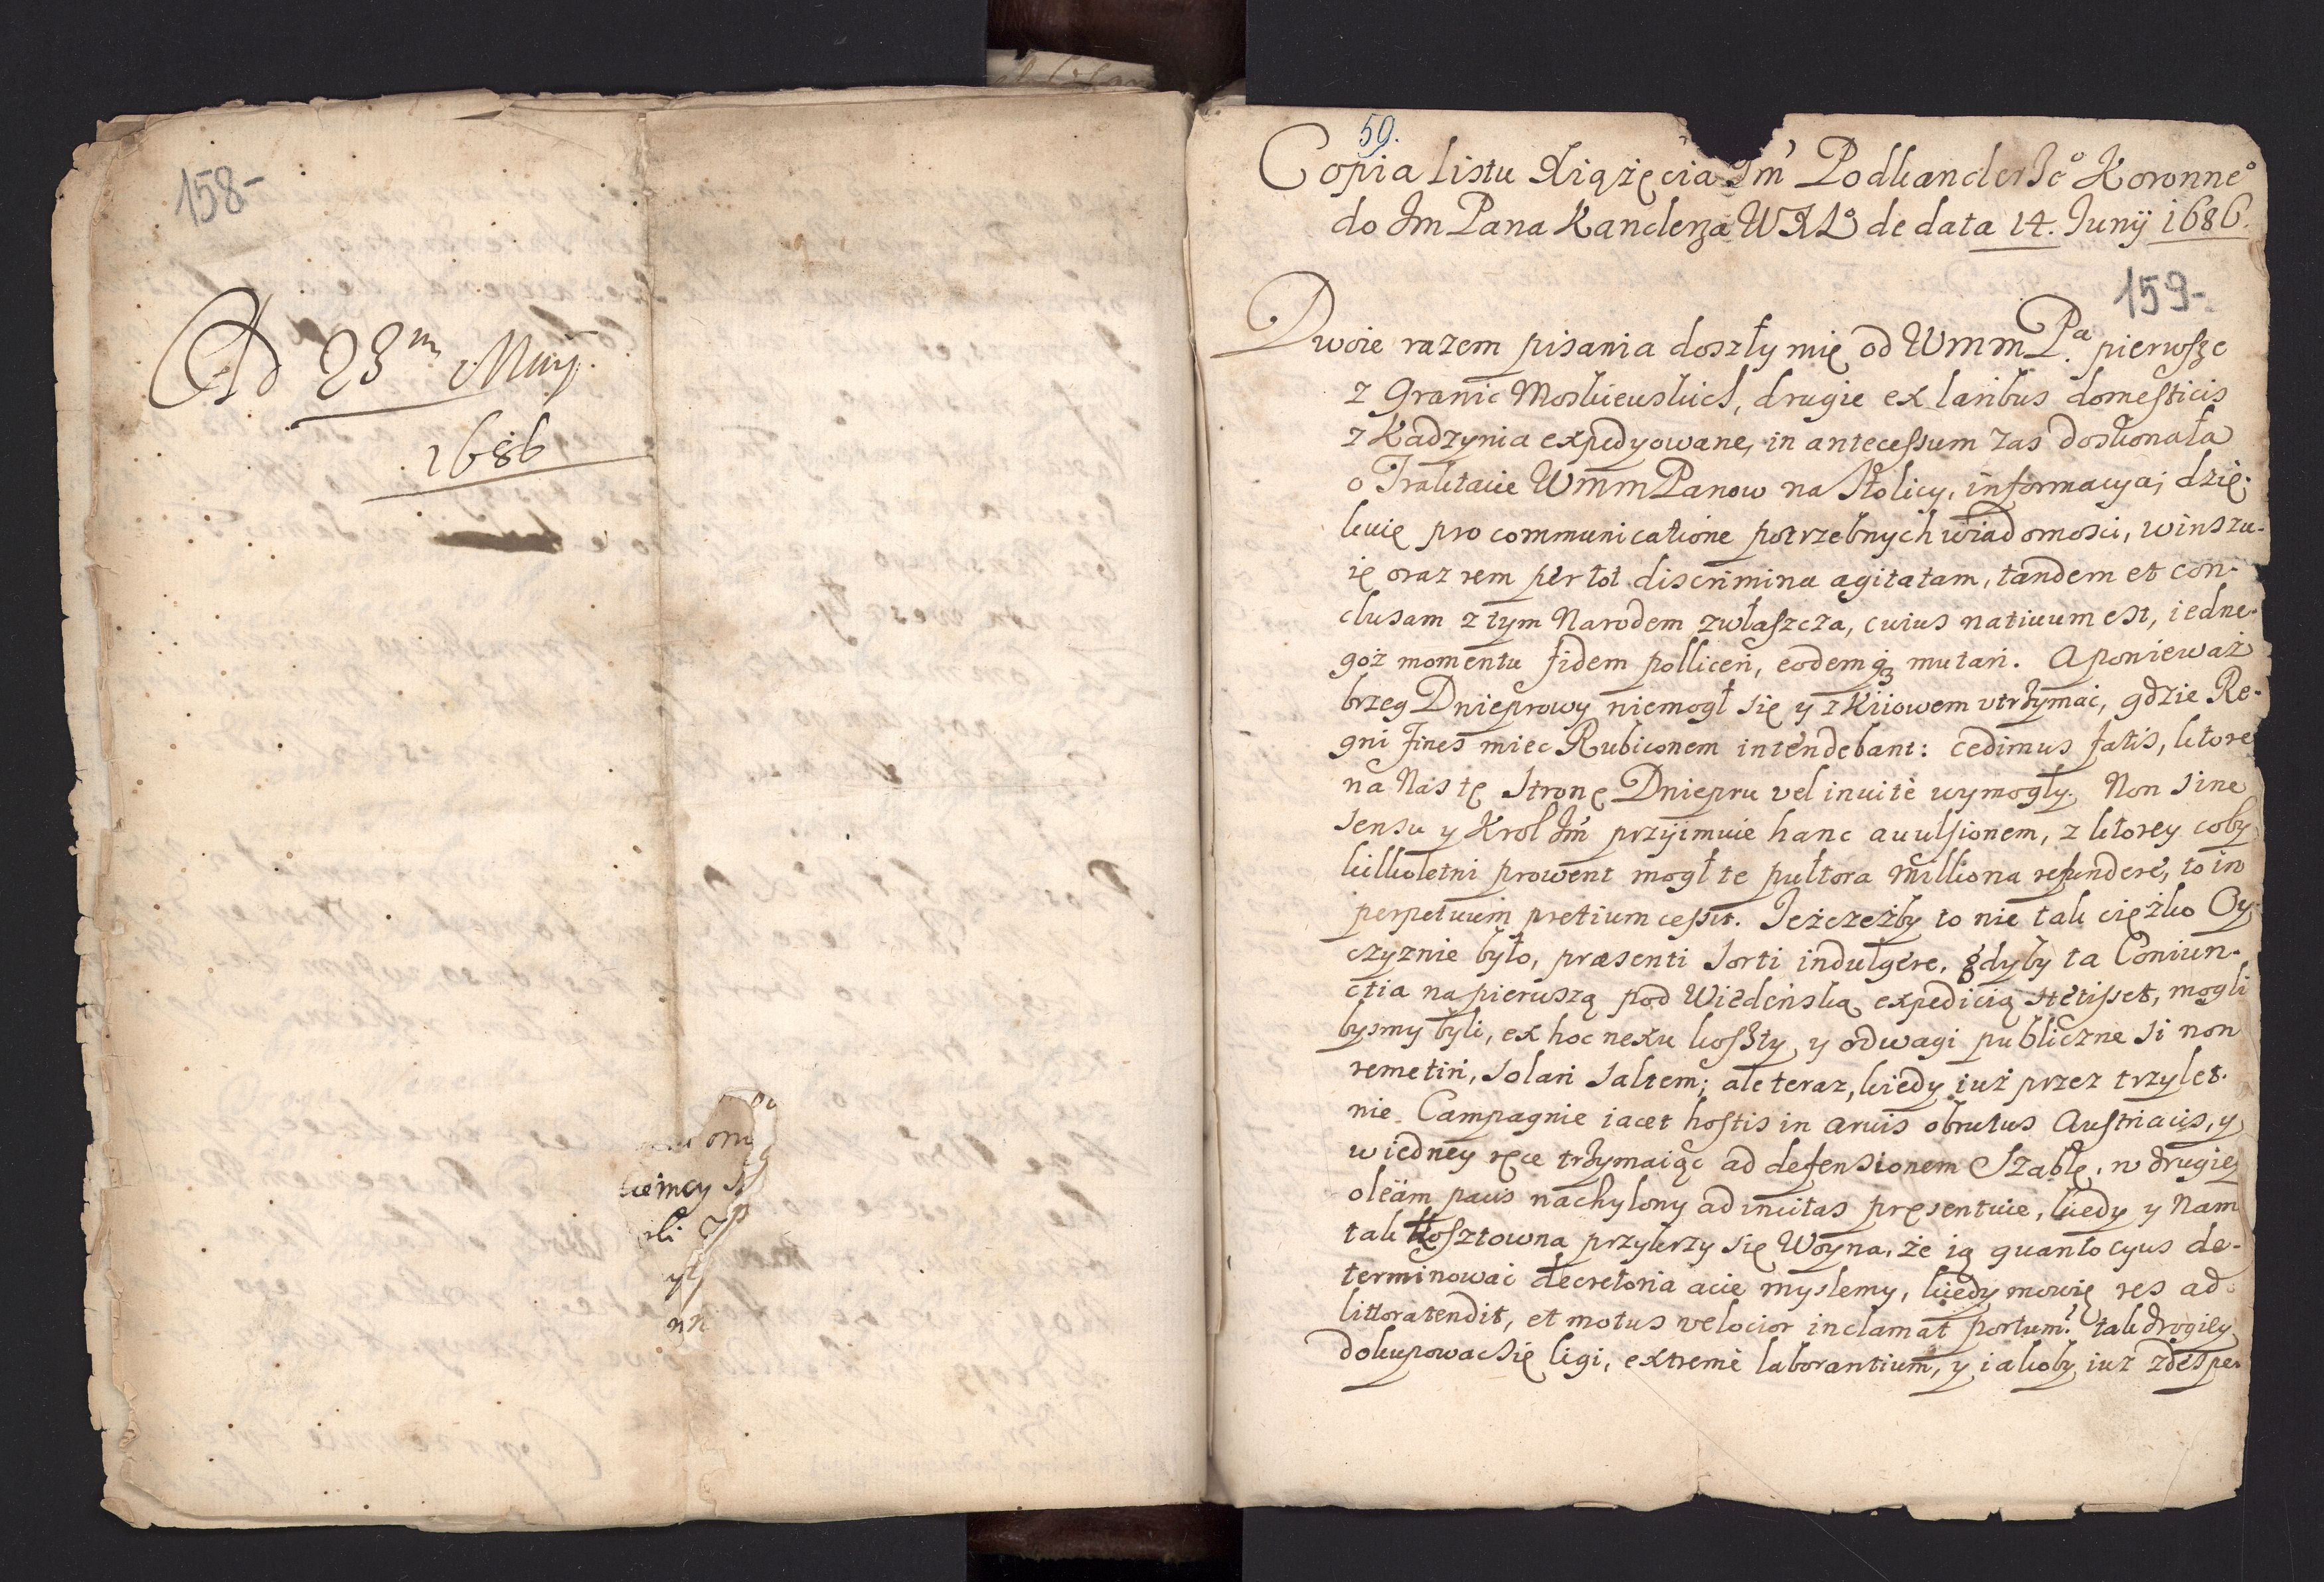 158-
Ad 23m Maij
1686
59.
Copia listu Xiążęcia Jm Podkanclerze° Koronne°
do Jm Pana Kanclerza WXL° de data 14. Junij 1686.
159-
Dwoie razem pisania doszły mię od WmmPa. pierwsze
z Granic Moskiewskich, drugie ex laribus domesticis
z Kadzynia expedyowane, in antecessum zas doskonała
o Traktacie WmmPanow na Stolicy, informacya; dzię-
kuię pro communicatione potrzebnych wiadomosci, winszu-
ię oraz rem per tot discrimina agitatam, tandem et con-
clusam z tym Narodem zwłaszcza, cuius natiuum est, iedne-
goż momentu fidem polliceri, eodemq3 mutari. A ponieważ
brzeg Dnieprowy niemogł się y z Kiiowem vtrzymać, gdzie Re-
gni fines miec Rubiconem intendebant: cedimus fatis, ktore
na Nas tę Stronę Dniepru vel inuite wymogły. Non sine
sensu y Krol Jm przyimuie hanc auulsionem, z ktorey coby
kilkoletni prowent mogł te pułtora Milliona refundere, to in
perpetuum pretium cessit. Jeżczeżby to nie tak ciężko Oy-
czyznie było, præsenti sorti indulgere, gdyby ta Coniun-
ctia na pierwszą pod Wiedeńską expedicią stetisset, mogli
bysmy byli, ex hoc nexu koszty, y odwagi publiczne si non
remetiri, solari saltem; ale teraz, kiedy iuż przez trzylet-
nie Campagnie iacet hostis in aruis obrutus Austriacis, y
w iedney ręce trzymaiąc ad defensionem Szablę, w drugiey
oleam pacis nachylony ad incitas pręsentuie, kiedy y Nam
tak kosztowna przykrzy się Woyna, że ią quantocyus de-
terminować decretoria acie myslemy, kiedy mowię res ad
littora tendit, et motus velocior inclamat portum? tak drogiey
dokupowac się ligi, extreme laborantium, y iakoby iuż zdespe-